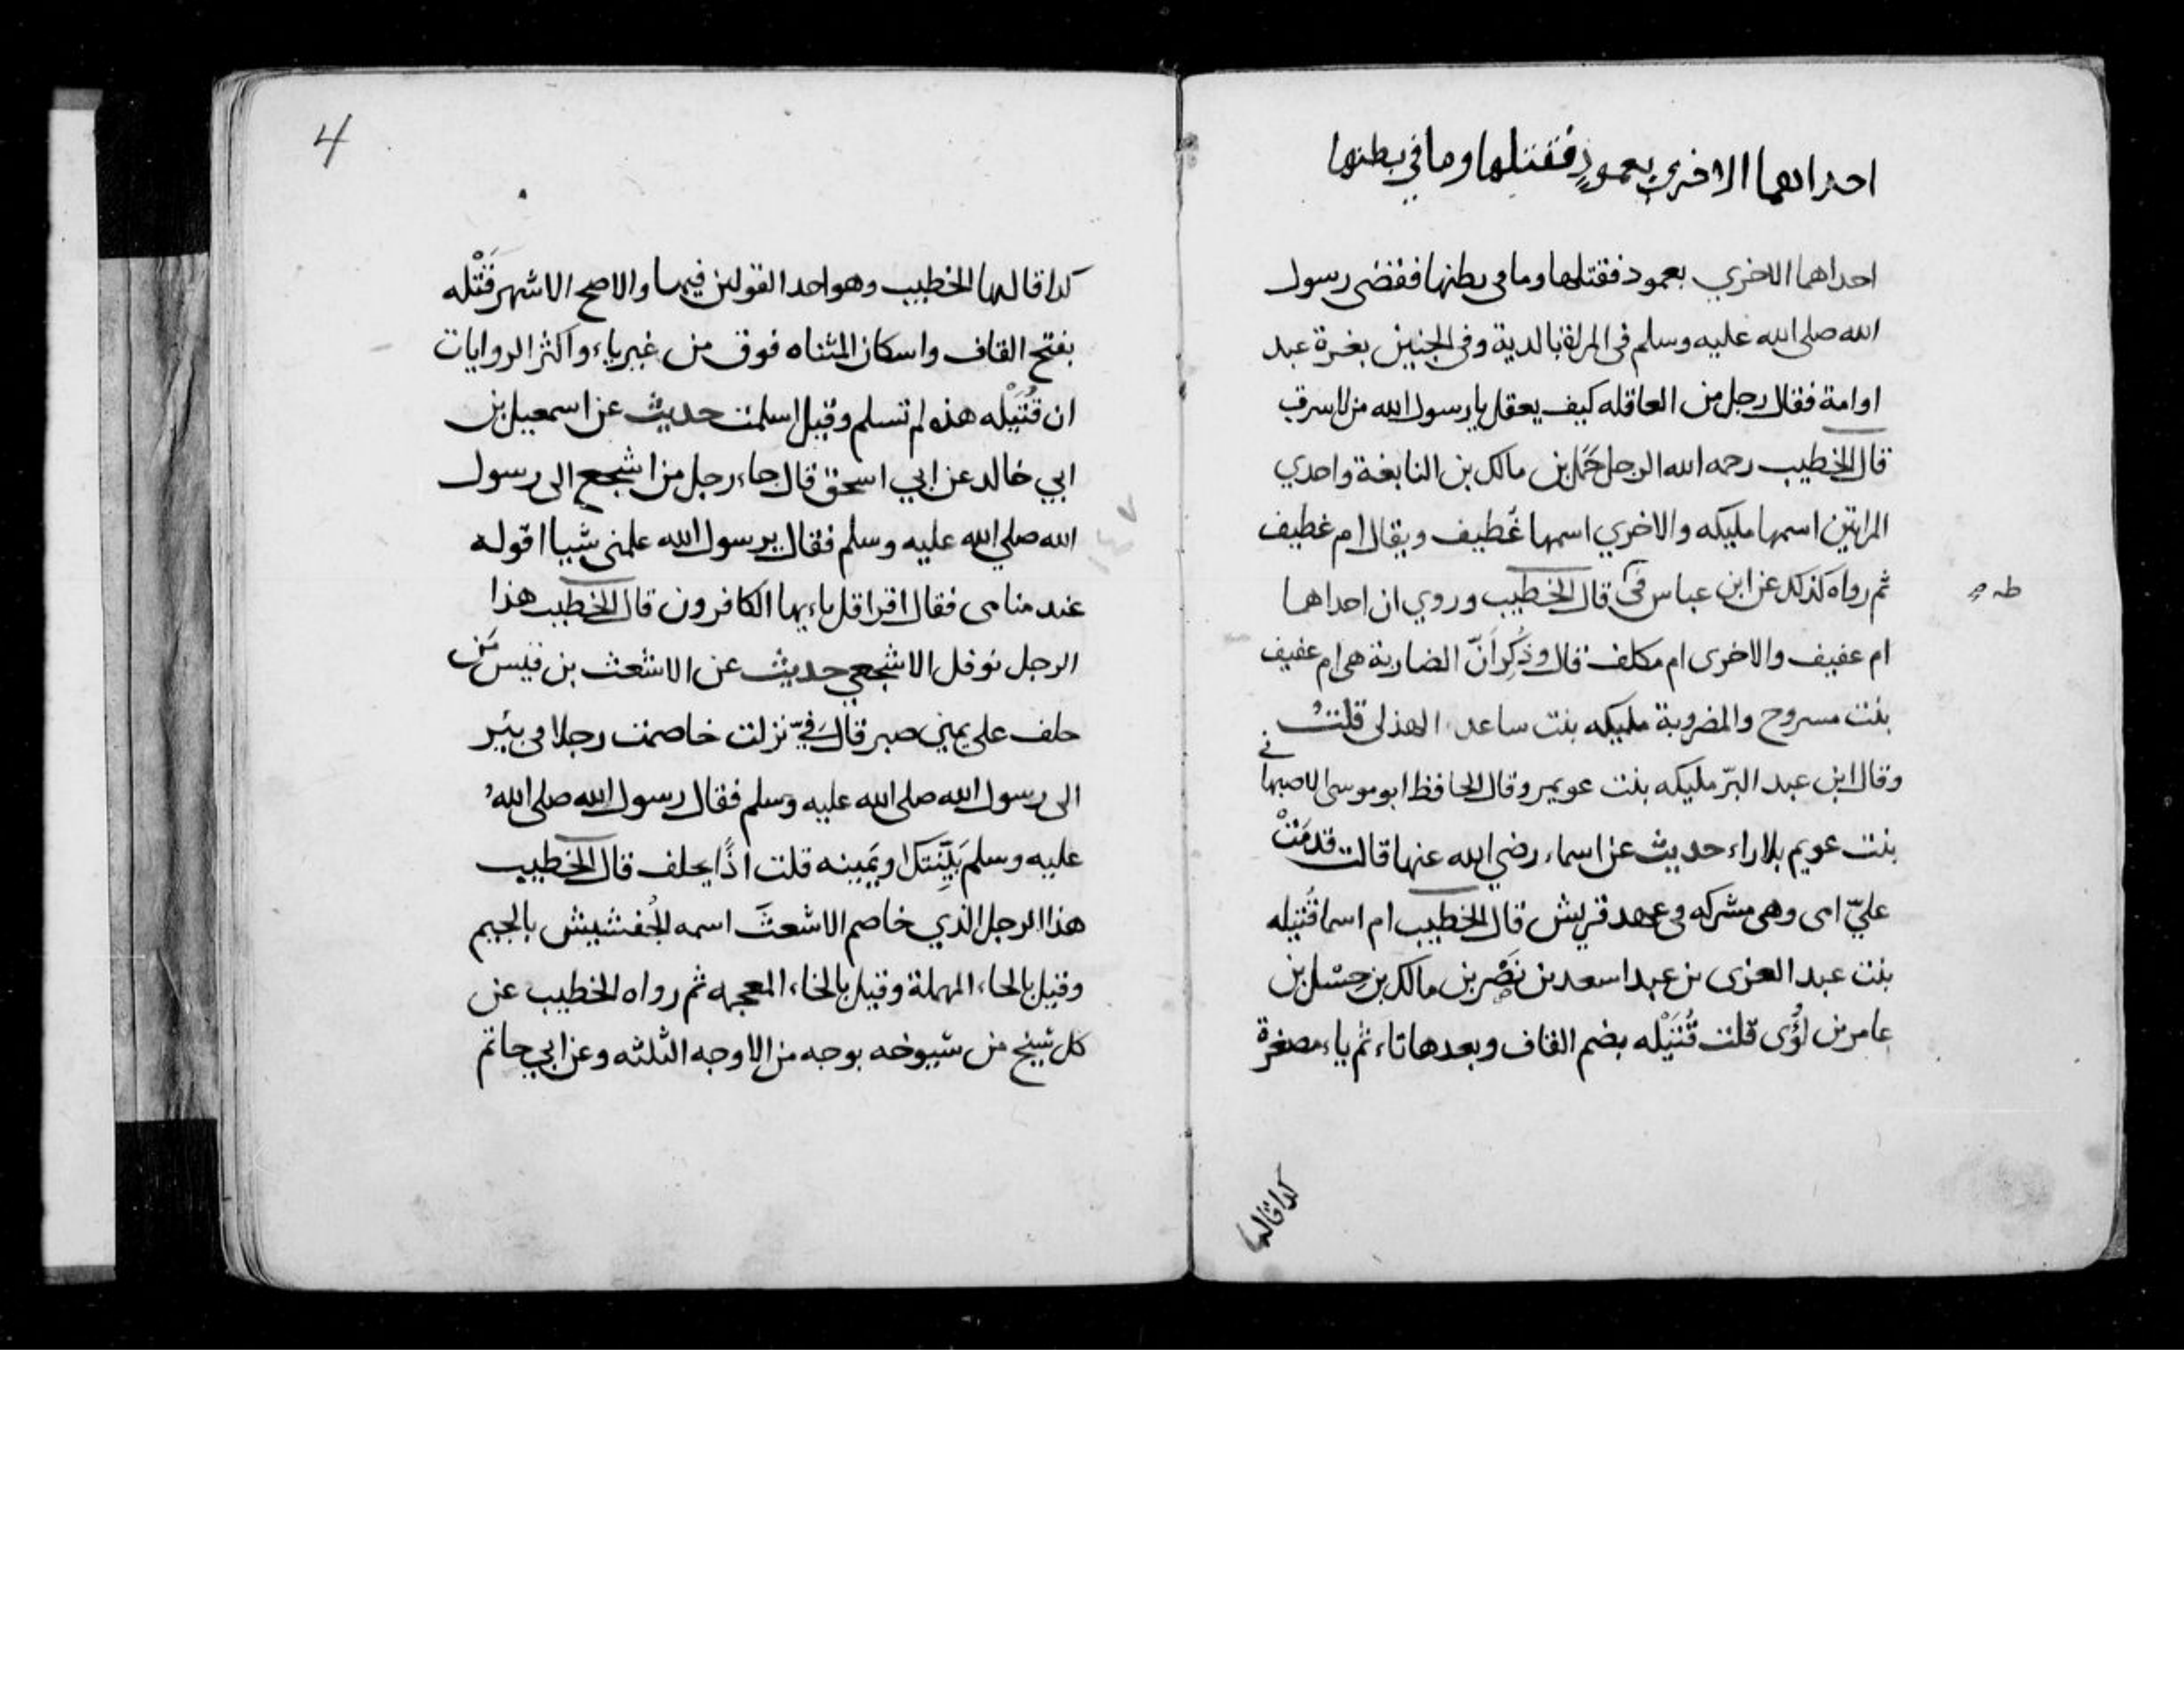 احداهما الاخرى بعمودٍ فقتلها وما في بطنها
احداهما الاخري بعمود فقتلها وما فى بطنها فقضى رسول
الله صلى الله عليه وسلم فى المراة بالدية وفى الجنين بغرة عبد
او امة فقال رجل من العاقله كيف يعقل يا رسول الله من لا سرق
قال الخطيب رحمه الله الرجل حَمَل بن مالك بن النابغة واحدي
المراتين اسمها مليكه والاخري اسمها غُطيف ويقال ام غطيف
ثم رواه كذلك عن ابن عباس قال الخطيب وروي ان احداهما
طه
ام عفيف والاخرى ام مكلف قال وذُكِر اَنّ الضاربة هى ام عفيف
بنت مسروح والمضروبة مليكه بنت ساعد الهذلى قلتُ
وقال ابن عبد البرّ مليكه بنت عويمر وقال الحافظ ابو موسى الاصبهانى
بنت عويم بلا راء حديث عن اسماء رضي الله عنها قالت قدمَتْ
عليّ امى وهى مشركه فى عهد قريش قال الخطيب ام اسما قُتيله
بنت عبد العزى بن عبد اسعد بن نَصْر بن مالك بن حِسْل بن
عامر بن لُؤَى قلت قُتَيْله بضم القاف وبعدها تاء ثم ياء مصغرة
كدا قالها
4
كدا قالها الخطيب وهو احد القولين فيها والاصح الاشهر قَتْله
بفتح القاف واسكان المثناه فوق من غير ياء واكثر الروايات
ان قُتَيْله هذه لم تسلم وقيل اسلمت حديث عن اسمعيل بن
ابي خالد عن ابي اسحق قال جاء رجل من اشجع الى رسول
الله صلي الله عليه وسلم فقال يرسول الله علمنى شيا اقوله
عند منامى فقال اقرا قل ياءيها الكافرون قال الخطيب هذا
الرجل نوفل الاشجعي حديث عن الاشعث بن قيس مَن
حلف على يمين صبر قال فِيّ نزلت خاصمت رجلا فى بئر
الى رسول الله صلى الله عليه وسلم فقال رسول الله صلى الله
عليه وسلم بَيِّنتك او يَمينه قلت اذًا يحلف قال الخطيب
هذا الرجل الذي خاصم الاشعثَ اسمه الجُفشيش بالجيم
وقيل بالحاء المهملة وقيل بالخاء المعجمه ثم رواه الخطيب عن
كل شيخ من شيوخه بوجه من الاوجه الثلثه وعن ابي حاتم